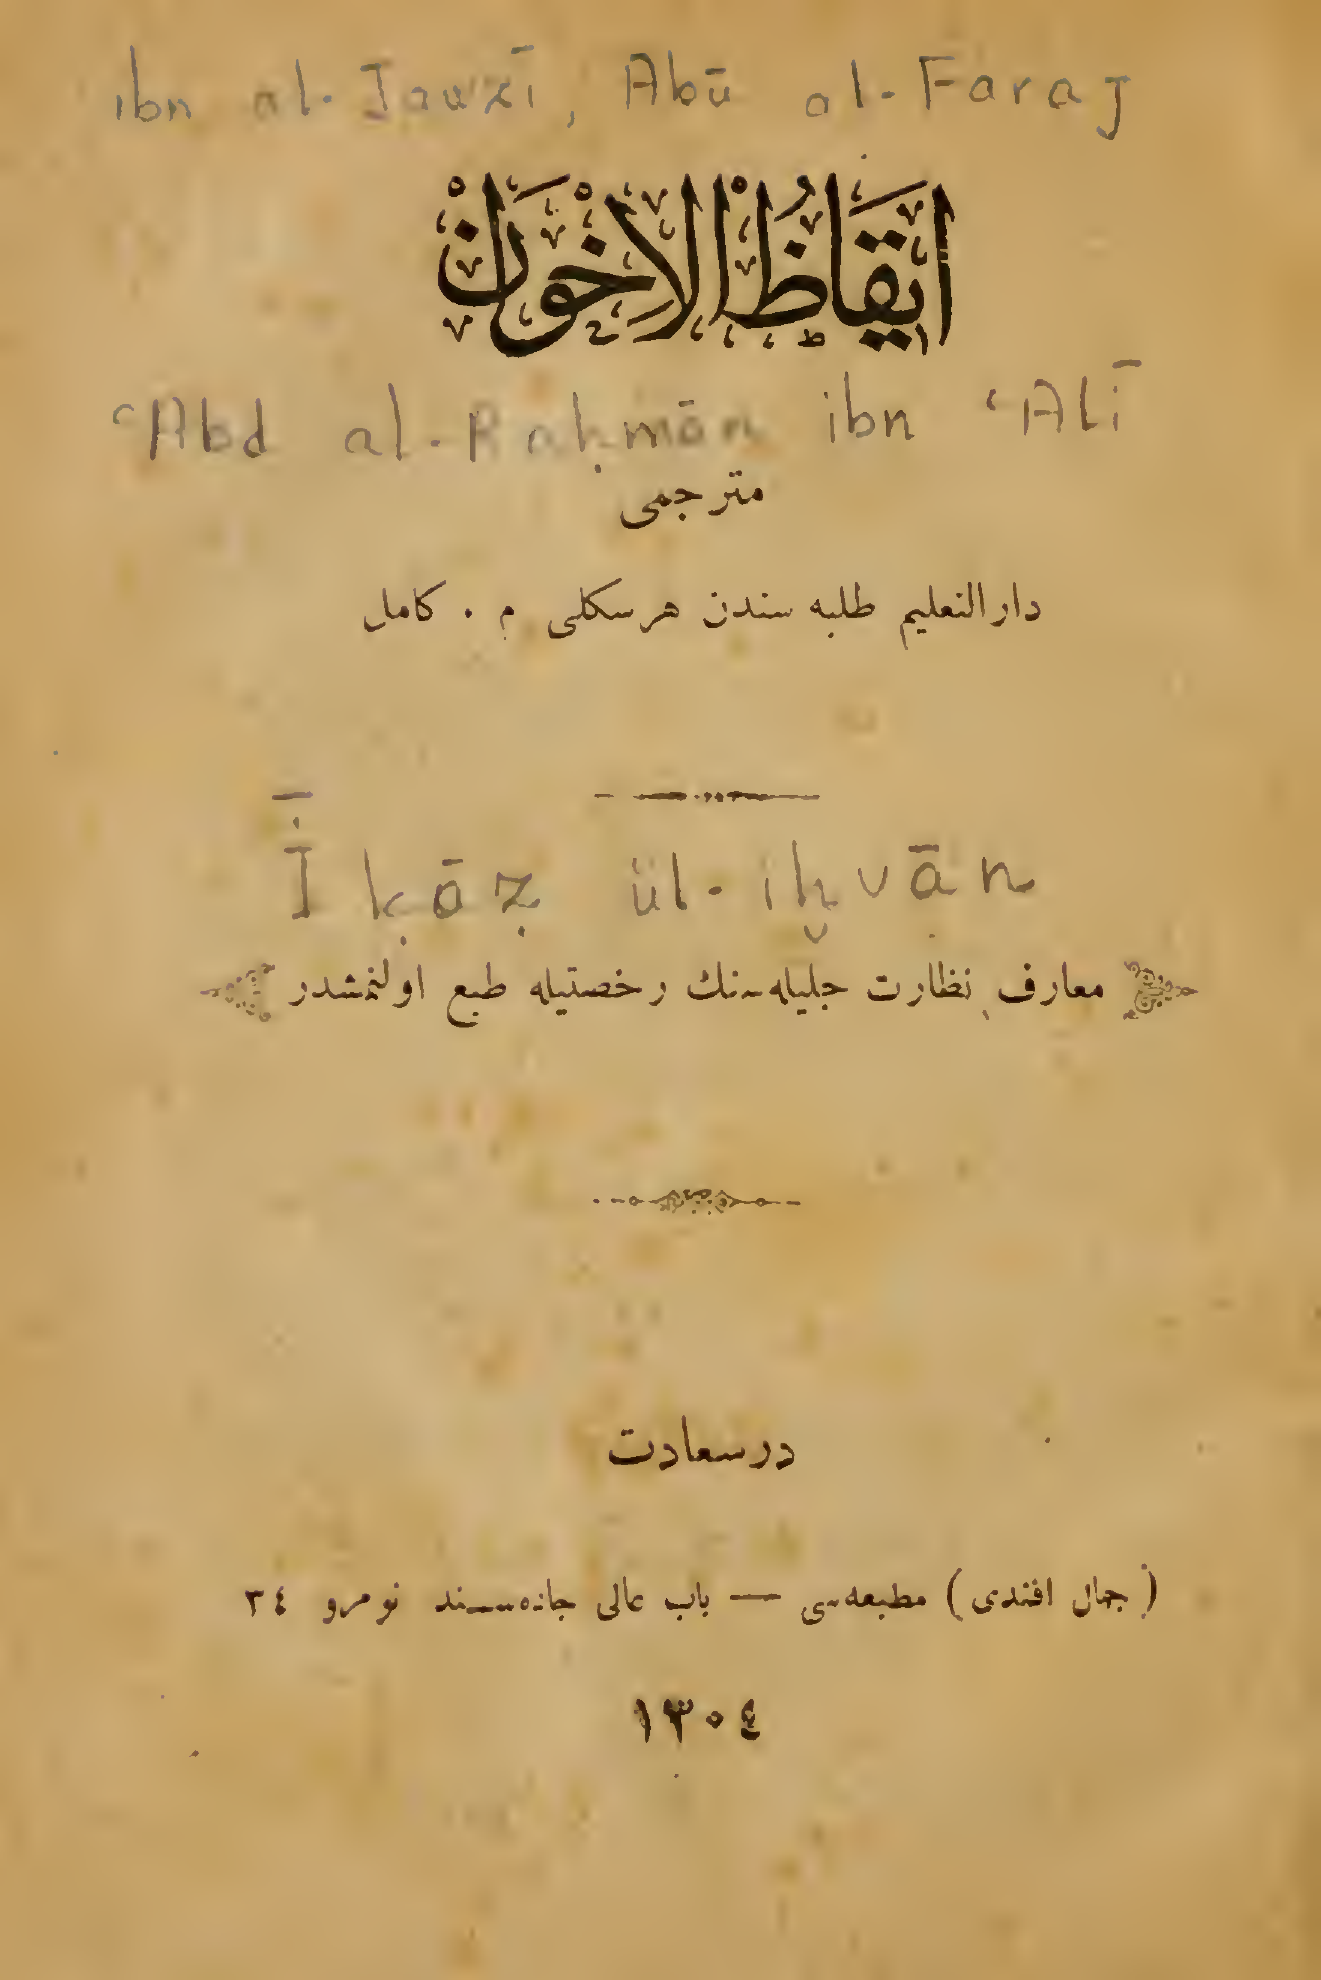 ibn al-Jawzī, Abū al-Faraj
ايقاظ الاخوان
ʿAbd al-Raḥmān ibn ʿAlī
مترجمى
دارالتعليم طلبه سندن هرسكلى م . كامل
Īḳāẓ ül-iḫvān
معارف نظارت جليله‌سنك رخصتيله طبع اولنمشدر
درسعادت
( جمال افندى ) مطبعه‌سى — باب عالى جاده‌سنده نومرو ٣٤
١٣٠٤